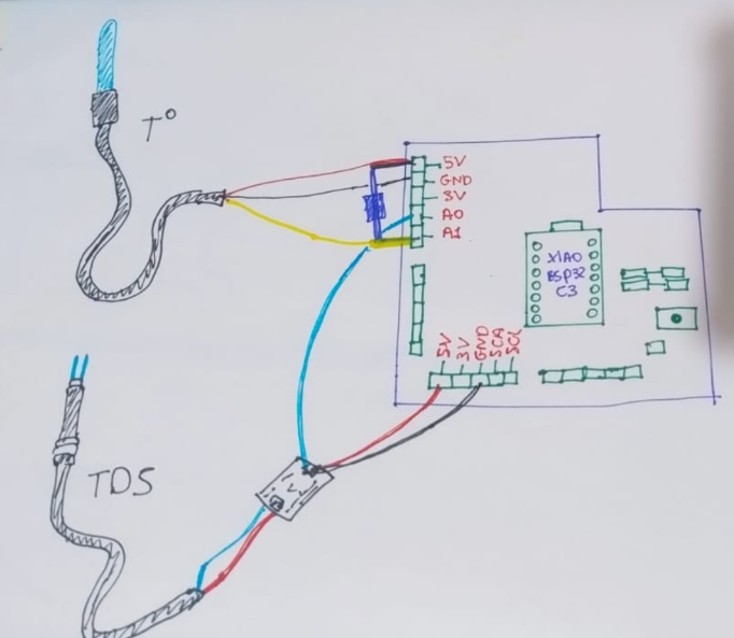 T°
5V
GND
3V
A0
A1
XIAO
ESP32
C3
5V
3V
GND
SCA
SCL
TDS